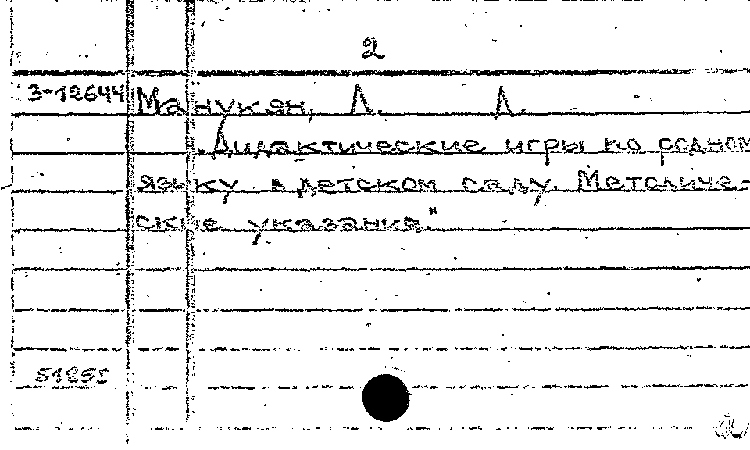 2
3-12644 Манукян, Л. Л.
Дидактические игры по родном
языку в детском саду. Методиче-
ские указания."